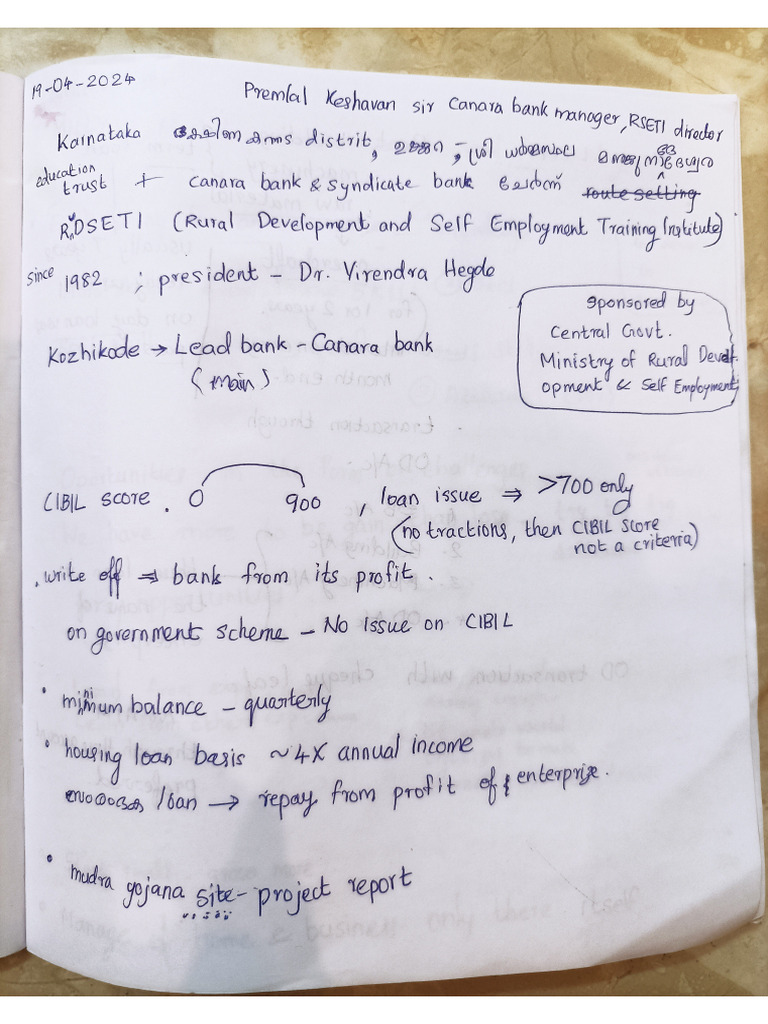 19-04-2024
Premlal Keshavan sir Canara bank manager, RSETI director
Karnataka ദക്ഷിണ കന്നട distrit, ഉജറെ, ശ്രീ ധർമസ്ഥല
education trust + canara bank & syndicate bank ചേർന്ന് route setting
RUDSETI (Rural Development and Self Employment Training Institute)
since 1982 ; president - Dr. Virendra Hegde
sponsored by
Central Govt.
Ministry of Rural Devel-
opment & Self Employment
Kozhikode → Lead bank - Canara bank
(main)
CIBIL score. 0 900, loan issue ⇒ >700 only
(no tractions, then CIBIL score
not a criteria)
. write off ⇒ bank from its profit.
on government scheme - No issue on CIBIL
• minimum balance - quarterly
• housing loan basis ~ 4X annual income
loan → repay from profit of enterprise.
• mudra yojana site - project report